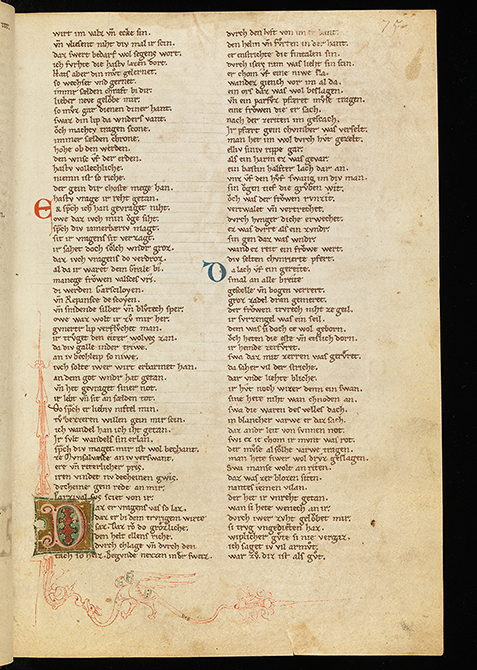 wirt im valz vñ ecke sin.
vñ vliesent niht div mal ir sin.
daz swert bedarf wol segens wort.
ich fvrhte div hastv lazen dort.
Hats aber din mvnt gelernet.
so wechset vnd gernet.
immir selden chraft bi dir.
lieber neve gelobe mir.
so mvz gar dienen diner hant.
swaz din lip da wnders vant.
och mahtv tragen scone.
immir selden chrone.
hohe ob den werden.
den wnsc vf der erden.
hastv vollechliche.
niemn ist so riche.
der gein dir choste mege han.
hastv vrage ir reht getan.
Er spch ich han gevraget niht.
owe daz iwch min oge siht.
spch div iamerberiv magt.
sit ir vragens sit verzagt.
ir sahet doch solch wndr groz.
daz iwch vragens do verdroz.
al da ir waret dem Grale bi.
manege frowen valsces vri.
di werden Garsciloyen.
vñ Repanse de scoyen.
vñ snidende silber vñ blvtech sper.
owe waz wolt ir zv mir her.
gvnerter lip verflvchet man.
ir trvget den eiter wolves zan.
da div galle in der triwe.
an iv bechleip so niwe.
ivch solte iwer wirt erbarmet han.
an dem got wndr hat getan.
vñ het gevraget siner not.
ir lebt vñ sit an selden tot.
Do spch er liebiv niftel min.
tv bezzeren willen gein mir scin.
ich wandel han ich iht getan.
Ir svlt wandels sin erlan.
spch div maget mir ist wol bechant.
ze Mvnsalvæsce an iv verswant.
ere vñ riterlicher pris.
iren vindet nv decheinen gwis.
decheine gein rede an mir.
Parzival svs sciet von ir.
Daz er vragens was so laz.
daz er bi dem trvrigen wirte
saz. daz rov do grozliche.
den helt ellens riche.
dvrch chlage vñ dvrch den
tach so heiz. begvnde nezzen in der sweiz.
dvrch den lvft von im er bant.
den helm vñ fvrten in der hant.
er enstricte die fintealen sin.
dvrch iseis ram was lieht sin scin.
er chom vf eine niwe sla.
wandez giench vor im al da.
ein ors daz was wol beslagen.
vñ ein parfvz pfæret mvse tragen.
eine frowen die er sach.
nach der zeriten im gescach.
Ir pfært gein chvmber was verselt.
man het im wol dvrch hvt gezelt.
elliv siniv rippe gar.
als ein harm ez was gevar.
ein bastin halfter lach dar an.
vnz vf den hvf swang im div man.
sin ogen tief die grvben wit.
och was der frowen rvnzit.
vertwalet vñ vertrechet.
dvrch hvnger dicke erwechet.
ez was dvrre als ein zvndr.
sin gen daz was wndr.
wand ez reit ein frowe wert.
div selten chvnrierte pfert.
Da lach vf ein gereite.
smal an alle breite
gescelle vñ bogen verrert.
groz zadel dran gemeret.
der frowen trvrech niht ze geil.
ir svrzengel was ein seil.
dem was si doch ze wol geborn.
Och heten die este vñ etslich dorn.
ir hemde zefvret.
swa daz mit zerren was gervret.
da saher vil der striche.
dar vnde liehte bliche.
ir hvt noch wizer denn ein swan.
sine fvrte niht wan chnoden an.
swa die waren des velles dach.
in blancher varwe er daz sach.
daz ander leit von svnnen not.
swi ez ie chom ir mvnt was rot.
der mvse al solhe varwe tragen.
man hete fiwer wol drvz geslagen.
Swa manse wolt an riten.
daz was zer blozen siten.
nantes iemen vilan.
der het ir vnrehte getan.
wan si hete wenech an ir.
dvrch iwer zvhte gelobet mir.
si trvc vngedienten haz.
wiplicher gvte si nie vergaz.
ich saget iv vil armvt.
war zv. diz ist als gvt.